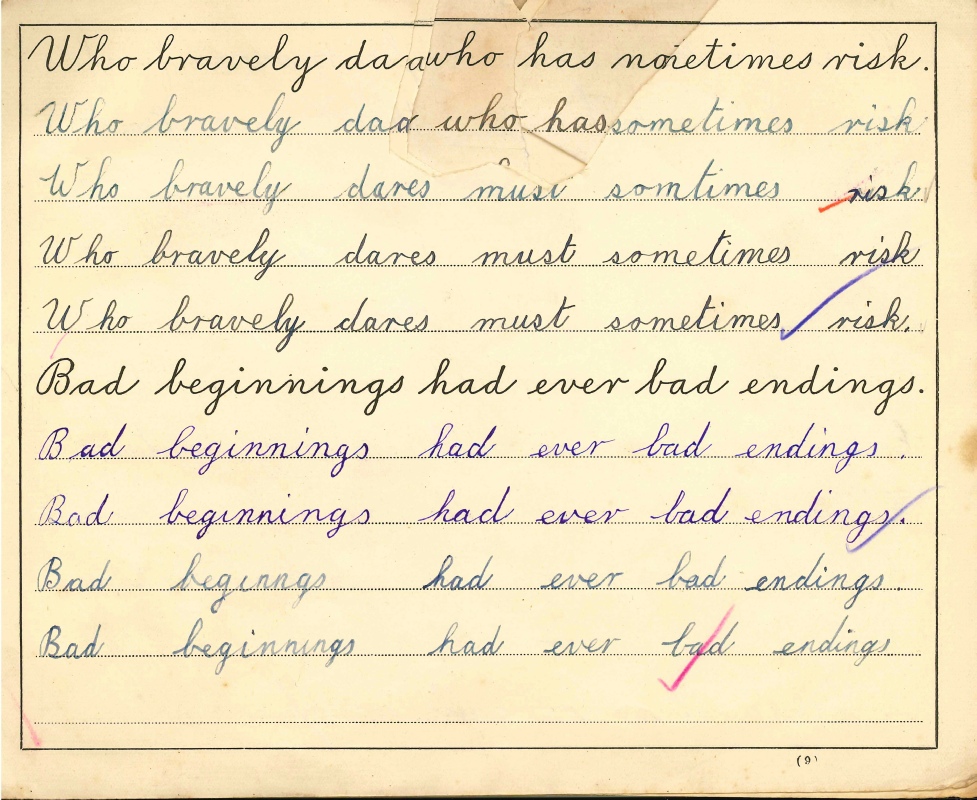 Who bravely daawho has noietimes risk.
Who bravely daa who hassometimes risk
Who bravely dares must somtimes risk
Who bravely dares must sometimes risk
Who bravely dares must sometimes risk.
Bad beginnings had ever bad endings.
Bad beginnings had ever bad endings.
Bad beginnings had ever bad endings.
Bad beginngs had ever bad endings.
Bad beginnings had ever bad endings
(9)